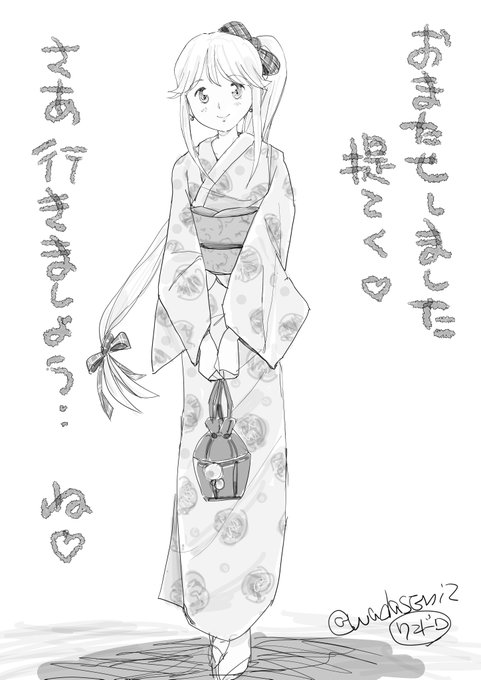 おまたせしました
提とく♡
さあ 行きましょう‥ ね♡